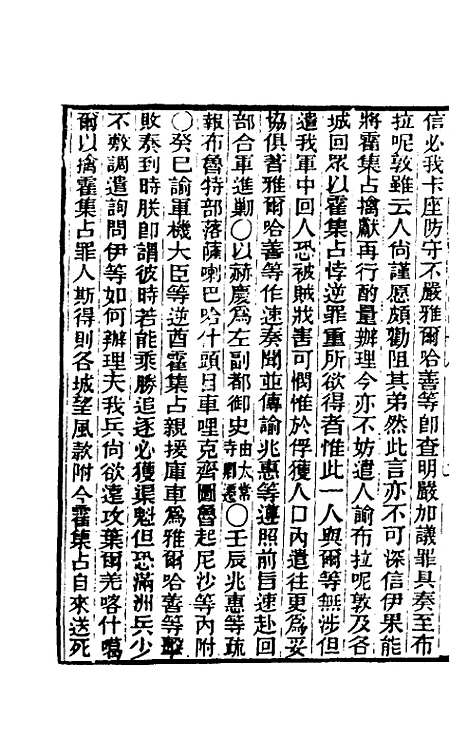 信必我卡座防守不嚴雅爾哈善等卽查明嚴加議罪具奏至布
拉呢敦雖云人尚謹愿頗勸阻其弟然此言亦不可深信伊果能
將霍集占擒獻再行酌量辦理今亦不妨遣人諭布拉呢敦及各
城回眾以霍集占悖逆罪重所欲得者惟此一人與爾等無涉但
遣我軍中回人恐被賊戕害可憫惟於俘獲人口內遣往更為妥
協俱著雅爾哈善等作速奏聞並傳諭兆惠等遵照前旨速赴回
部合軍進勦〇以赫慶為左副都御史由太常寺卿遷〇壬辰兆惠等疏
報布魯特部落薩喇巴哈什頭目車哩克齊圖魯起尼沙等內附
〇癸巳諭軍機大臣等逆酋霍集占親援庫車為雅爾哈善等擊
敗奏到時朕卽謂彼時若能乘勝追逐必獲渠魁但恐滿洲兵少
不敷調遣詢問伊等如何辦理夫我兵尚欲遠攻葉爾羌喀什噶
爾以擒霍集占罪人斯得則各城望風款附今霍集占自來送死